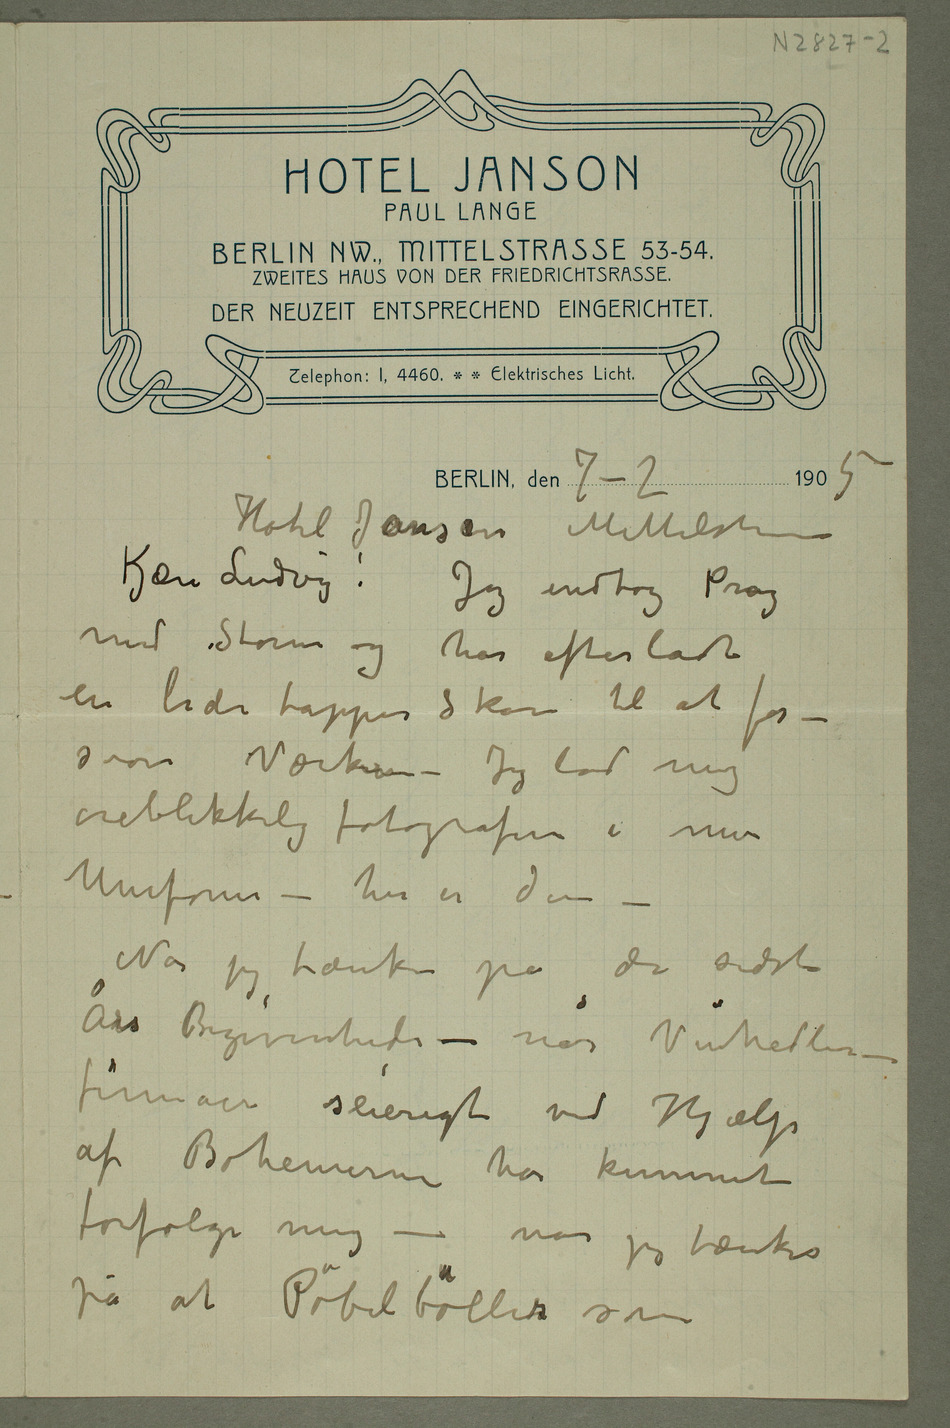 N2827-2
HOTEL JANSON
PAUL LANGE
BERLIN NW., MITTELSTRASSE 53-54.
ZWEITES HAUS VON DER FRIEDRICHTSRASSE.
DER NEUZEIT ENTSPRECHEND EINGERICHTET.
Telephon: I, 4460. * * Elektrisches Licht.
BERLIN, den 7–2 1905
Hotel Jansen Mittelstr
Kjære Ludvig! Jeg indtog Prag
med Storm og har efterladt
en lide tapper Skare til at for–
svare Værkerne – Jeg lod mig
øieblikkelig fotografere i min
Uniform – her er den –
Når jeg tænker på de sidste
Års Begivenheder – når Vinhedler–
firmaer seierigt ved Hjælp
af Bohemerne har kunnet
forfølge mig – når jeg tænker
på at Pöbelböller som